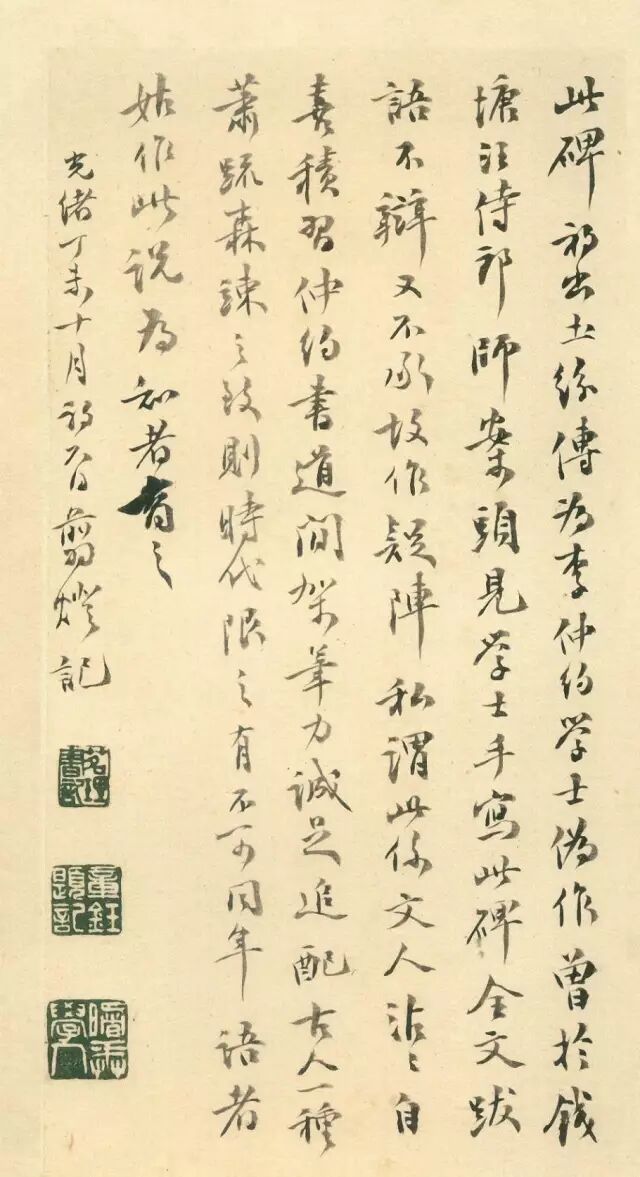 此碑初出土纷傳為李仲約學士偽作曾於錢
塘汪侍郎師案頭見學士手寫此碑全文跋
語不辯又不承故作疑陣私謂此係文人沾沾自
喜積習仲約書道間架筆力誠足追配古人一種
蕭疏森諫之致則時代限之有不可同年語者
姑作此說為知者首之
光緒丁未十月初六日翦燈記
茗理書記
章鈺題記